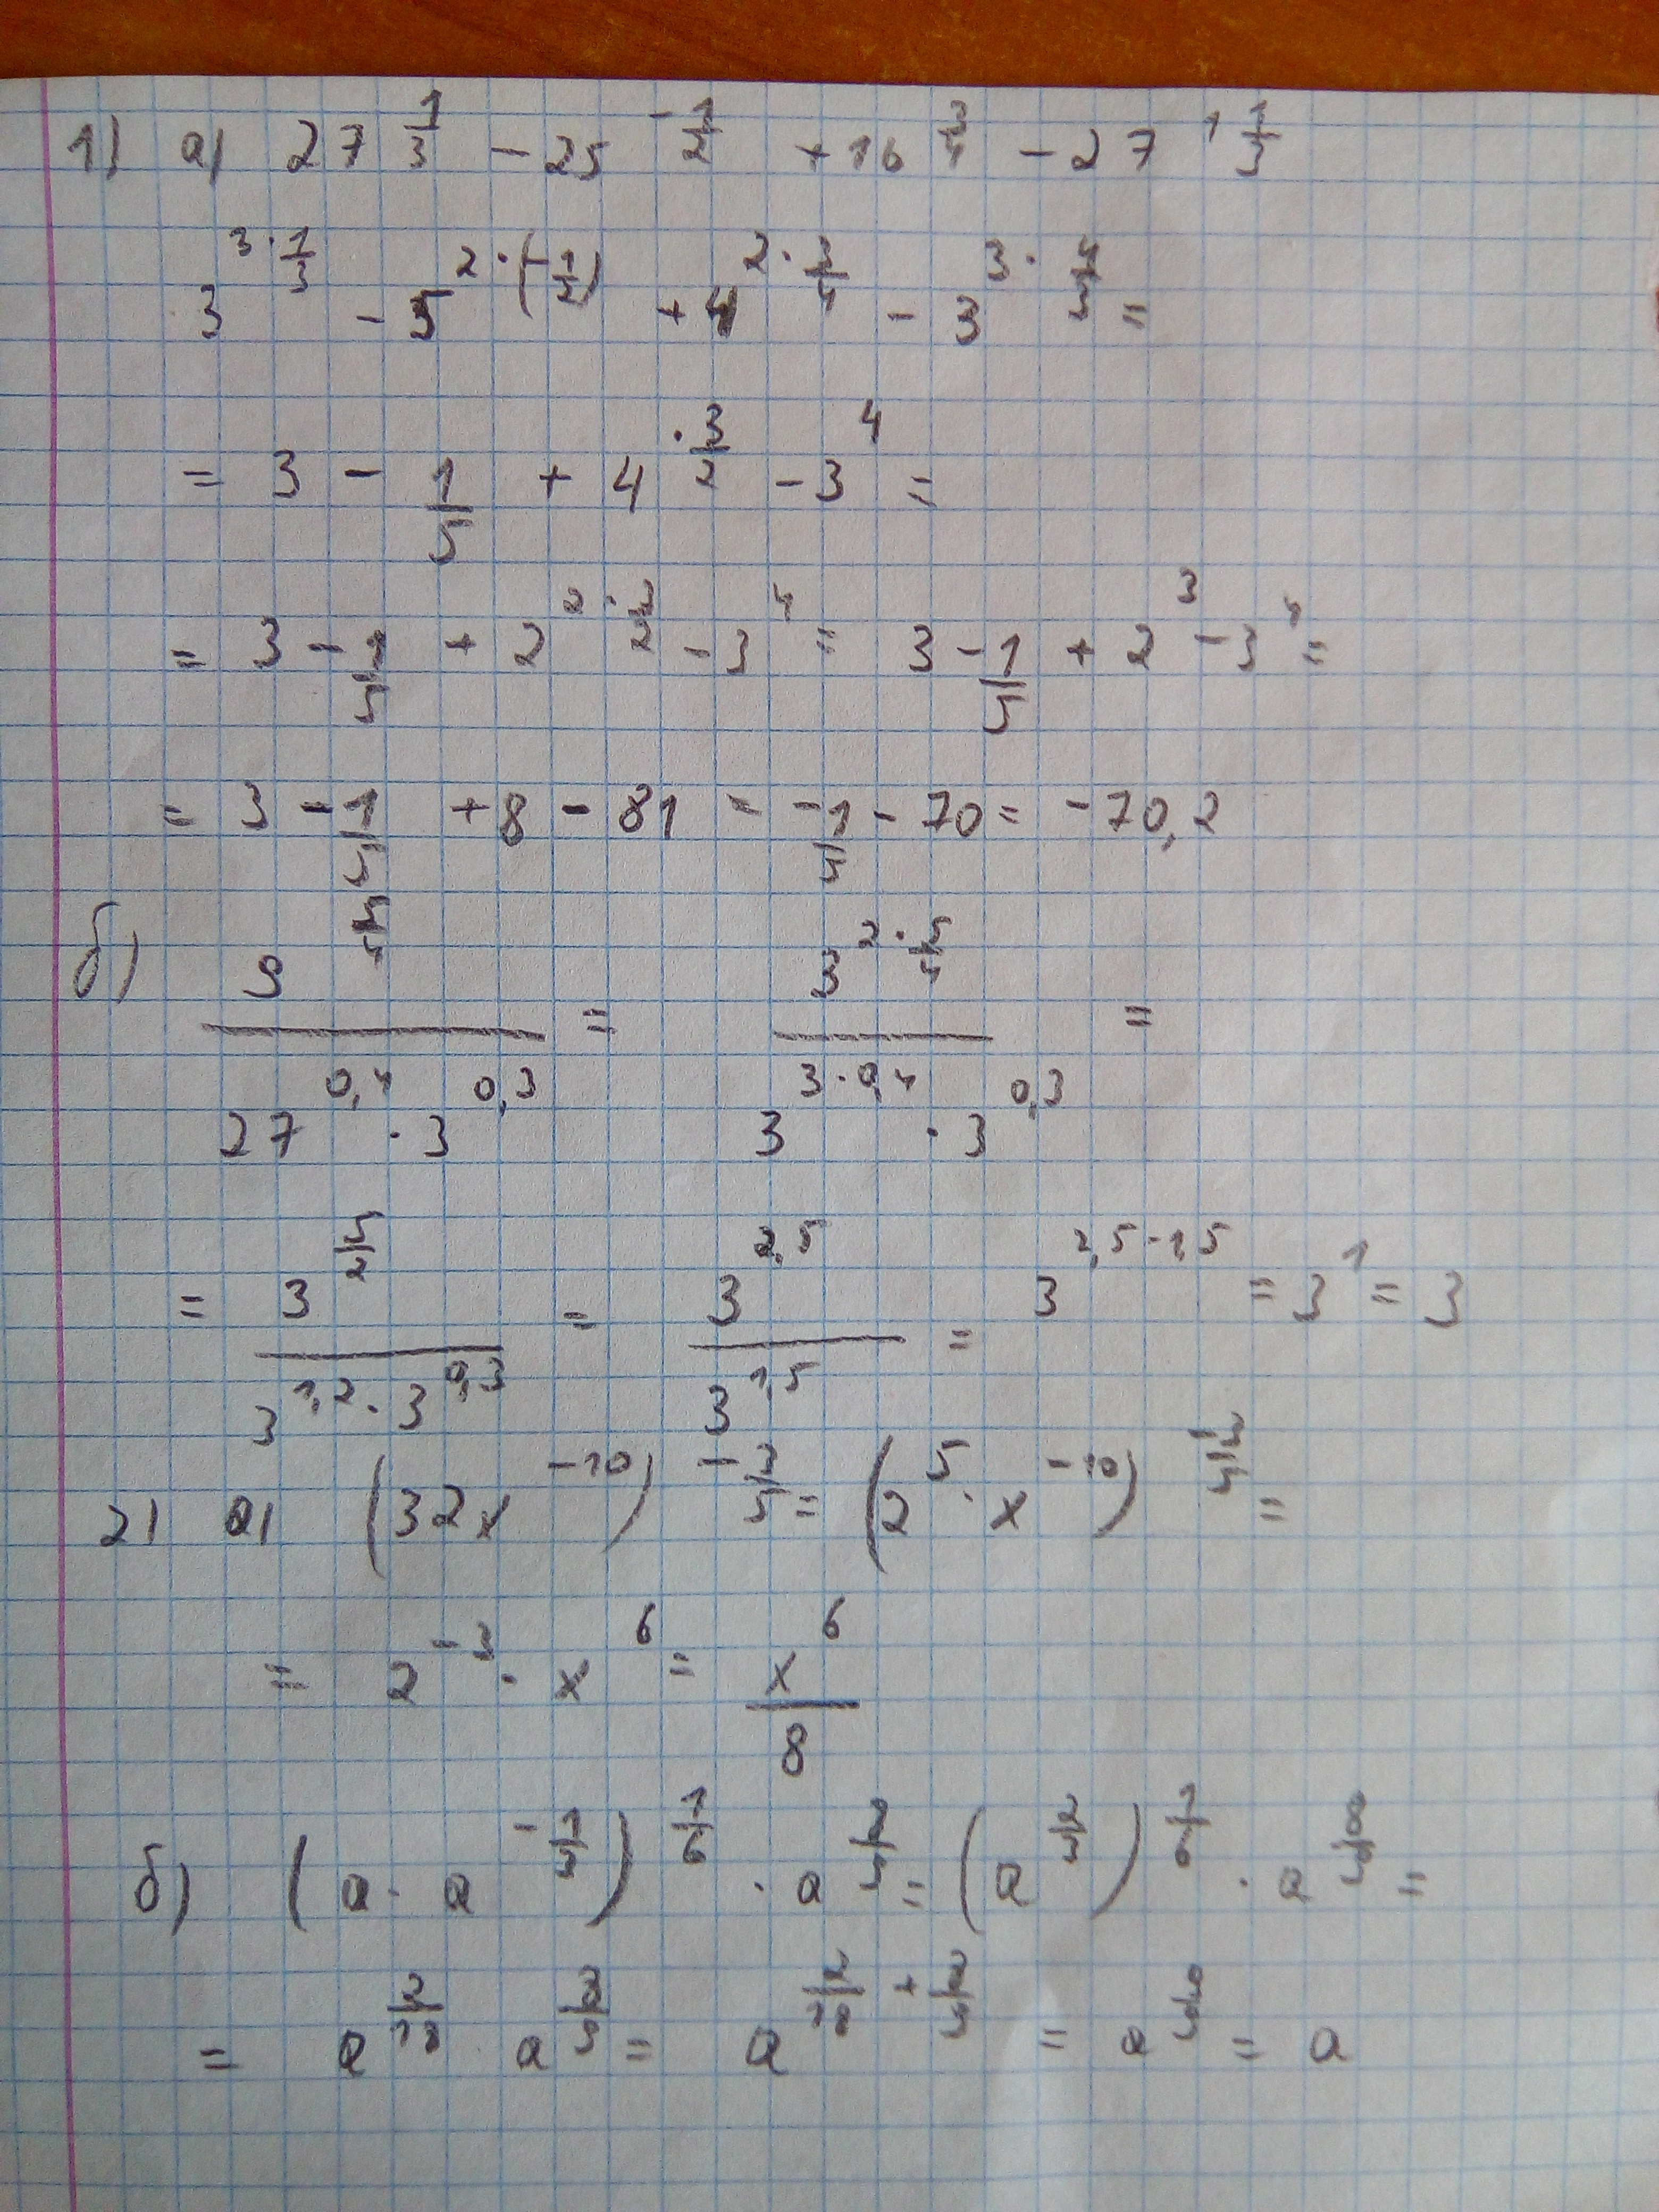 1) а) 27^(1/3) - 25^(-1/2) + 16^(3/4) - 27^(1 1/3)
3^(3·1/3) - 5^(2·(-1/2)) + 4^(2·3/4) - 3^(3·4/3) =
= 3 - 1/5 + 4^(·3/2) - 3^4 =
= 3 - 1/5 + 2^(2·3/2) - 3^4 = 3 - 1/5 + 2^3 - 3^4 =
= 3 - 1/5 + 8 - 81 = -1/5 - 70 = -70,2
б) 9^(5/4) / (27^(0,4) · 3^(0,3)) = 3^(2·5/4) / (3^(3·0,4) · 3^(0,3)) =
= 3^(5/2) / (3^(1,2) · 3^(0,3)) = 3^(2,5) / 3^(1,5) = 3^(2,5-1,5) = 3^1 = 3
2) а) (32x^(-10))^(-3/5) = (2^5 · x^(-10))^(-3/5) =
= 2^(-3) · x^6 = x^6 / 8
б) (a · a^(-1/3))^(1/6) · a^(8/9) = (a^(2/3))^(1/6) · a^(8/9) =
= a^(2/18) · a^(8/9) = a^(2/18 + 8/9) = a^(9/9) = a